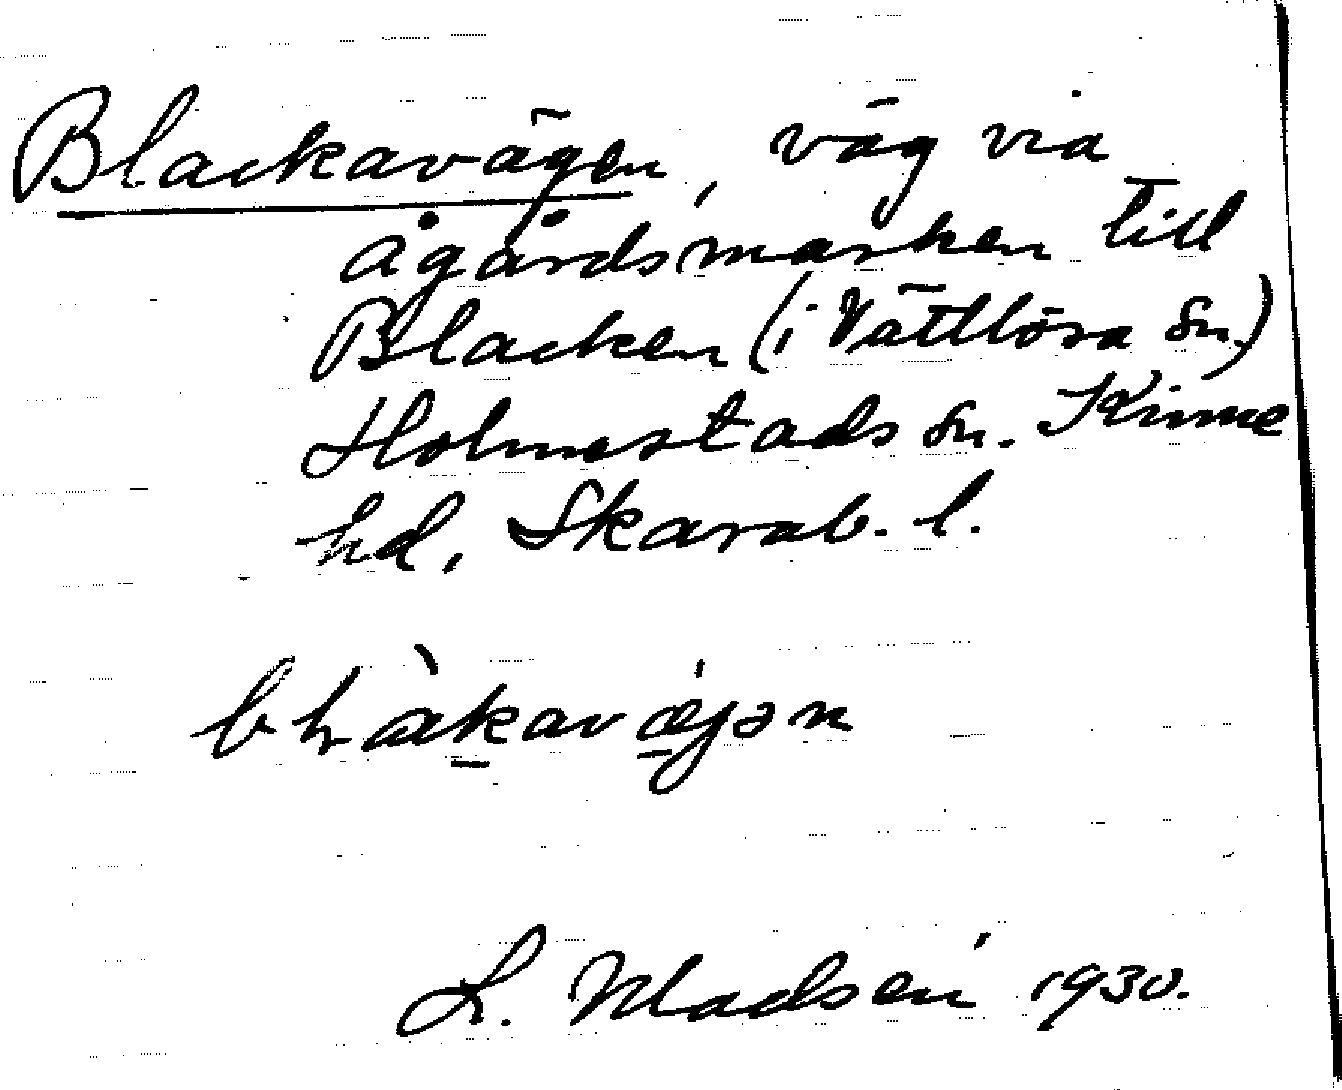 Blackavägen, väg via
Ågårdsmarken till
Blacken (i Vättlösa sn.)
Holmestads sn. Kinne
hd, Skarab. l.
L. Madsén 1930.